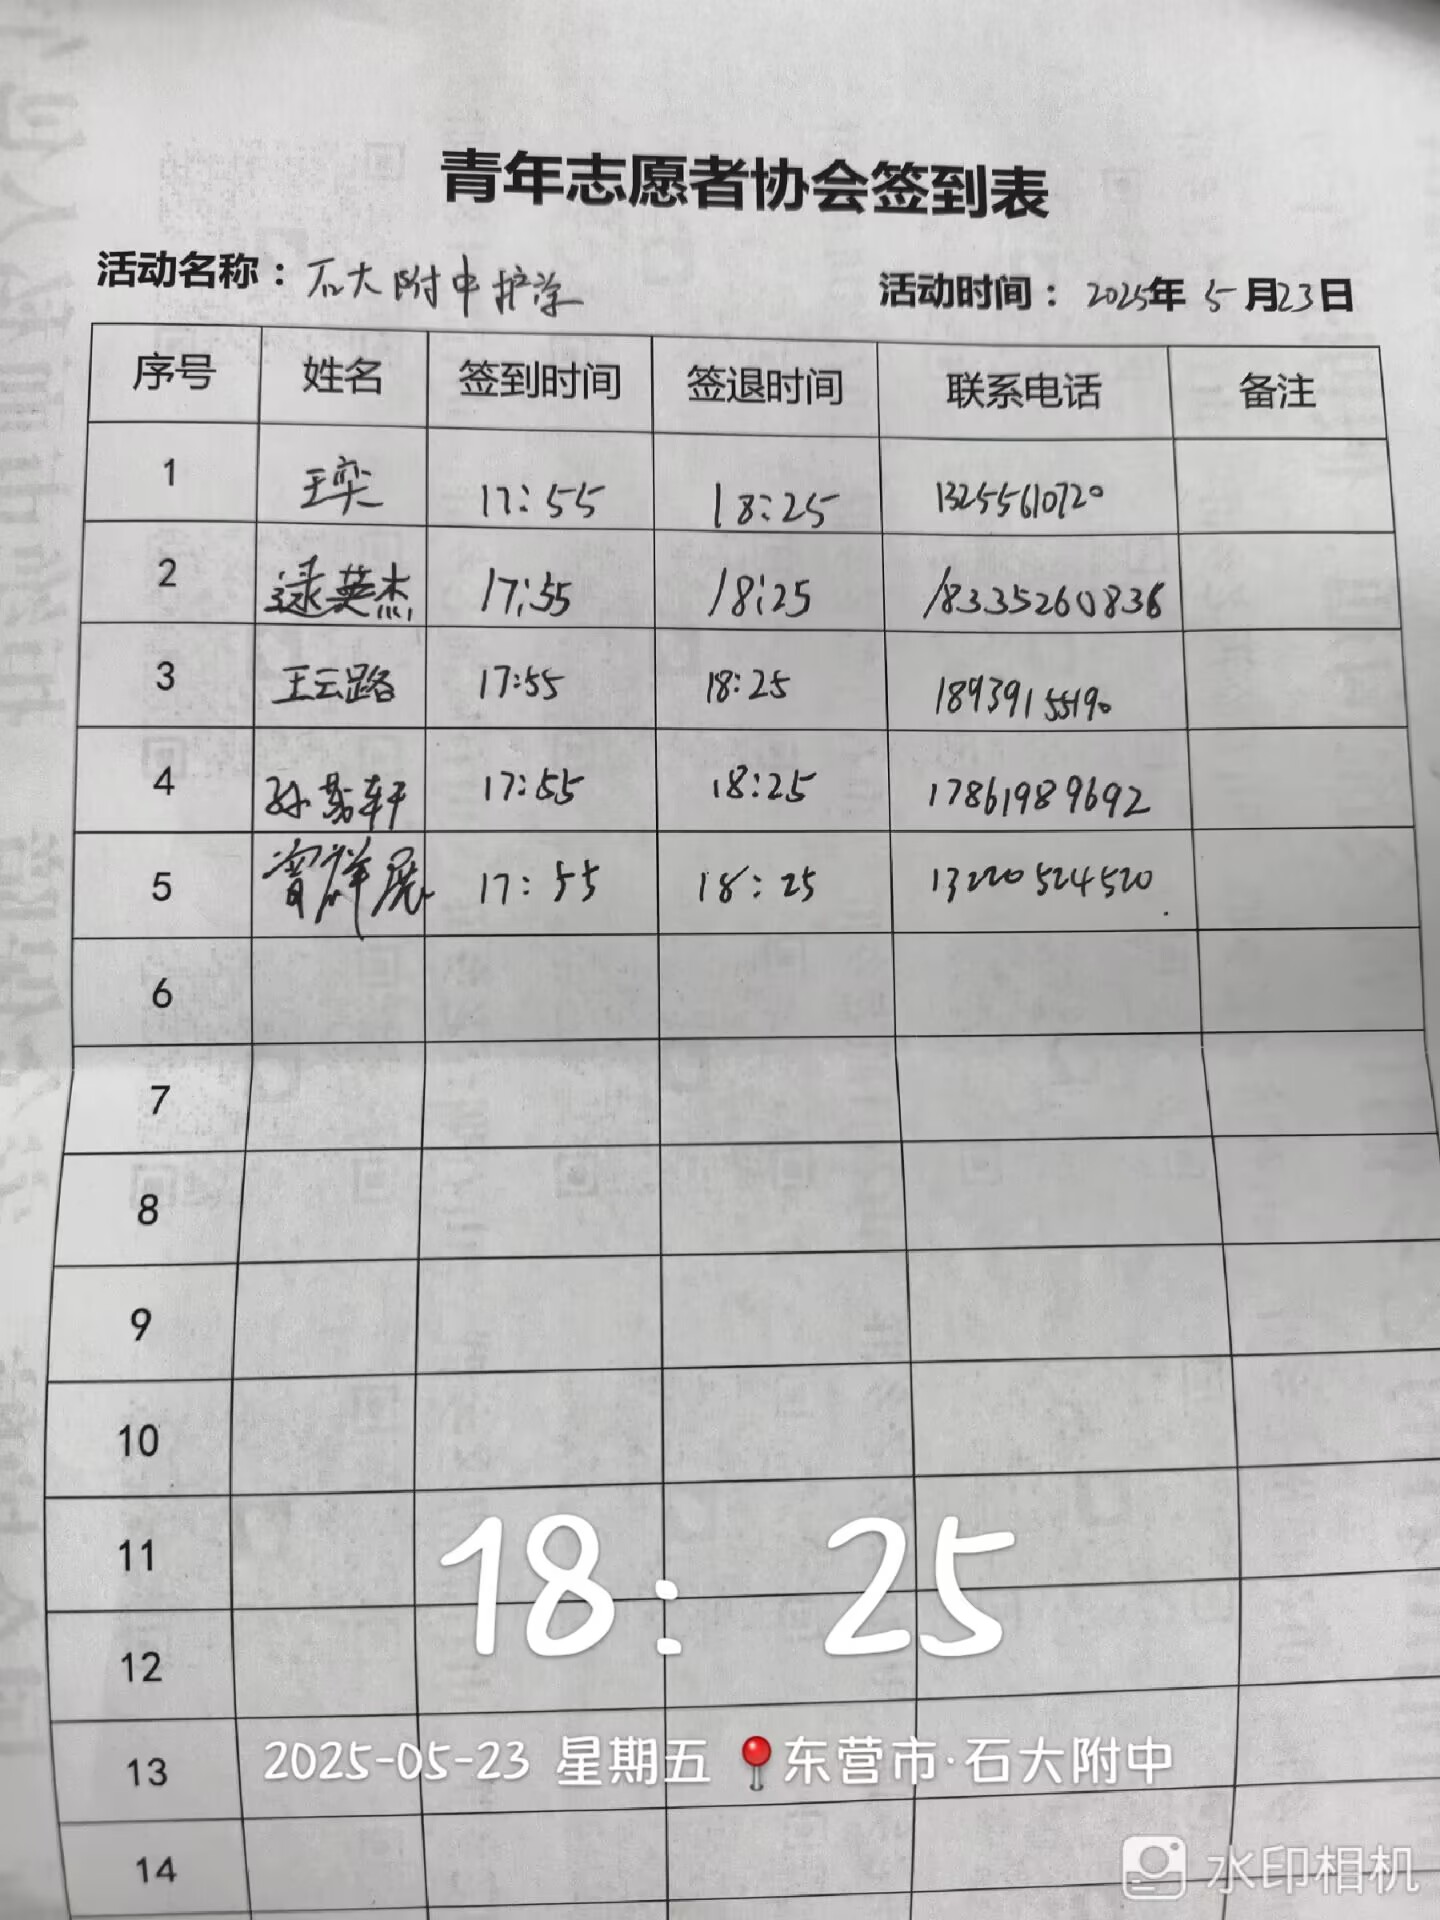 青年志愿者协会签到表
活动名称：石大附中护学 活动时间：2025年 5月23日
序号 姓名 签到时间 签退时间 联系电话 备注
1 王奕 17:55 18:25 13255610720
2 逯英杰 17:55 18:25 18335260836
3 王云路 17:55 18:25 18939155190
4 孙 轩 17:55 18:25 17861989692
5 群展 17:55 18:25 13220524520
6
7
8
9
10
11
12
13
14
18:25
2025-05-23 星期五 东营市·石大附中
水印相机